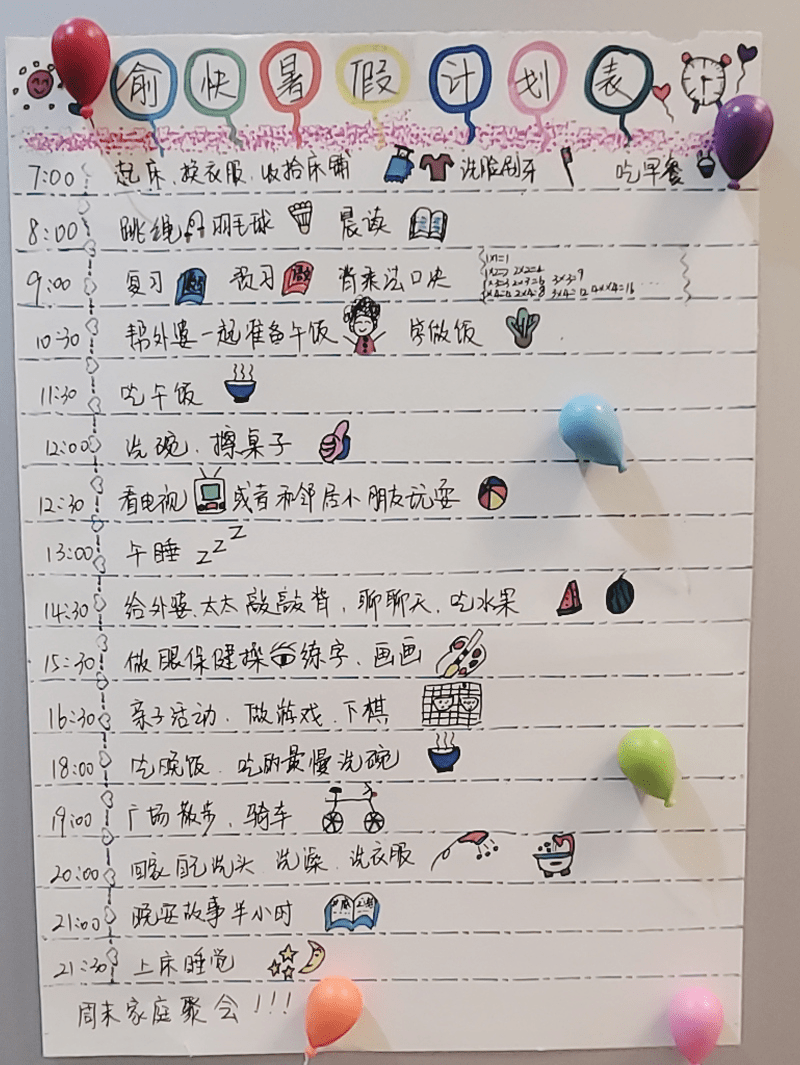 俞快暑假计划表
7:00 起床、换衣服、收拾床铺 洗脸刷牙 吃早餐
8:00 跳绳 羽毛球 晨读
9:00 复习 预习 背乘法口决
1×1=1
1×2=2 2×2=4
1×3=3 2×3=6 3×3=9
1×4=4 2×4=8 3×4=12 4×4=16 ...
10:30 帮外婆一起准备午饭 学做饭
11:30 吃午饭
12:00 洗碗、擦桌子
12:30 看电视 或者和邻居小朋友玩耍
13:00 午睡 zzz
14:30 给外婆、太太敲敲背，聊聊天、吃水果
15:30 做眼保健操 练字、画画
16:30 亲子活动、做游戏、下棋
18:00 吃晚饭、吃的最慢洗碗
19:00 广场散步、骑车
20:00 回家自己洗头、洗澡、洗衣服
21:00 晚安故事半小时
21:30 上床睡觉
周末家庭聚会!!!